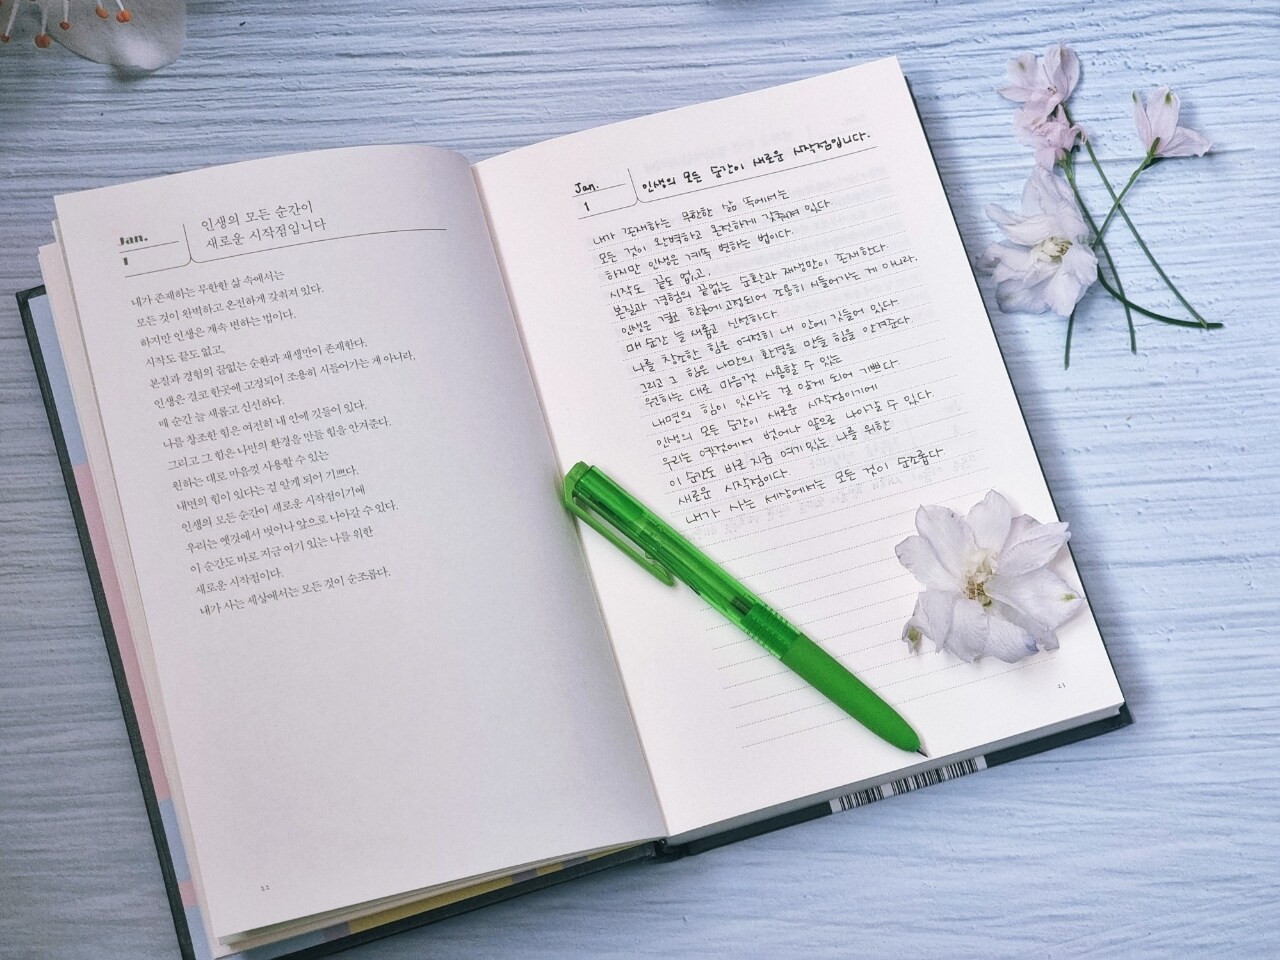 Jan.
1
인생의 모든 순간이
새로운 시작점입니다
내가 존재하는 무한한 삶 속에서는
모든 것이 완벽하고 온전하게 갖춰져 있다.
하지만 인생은 계속 변하는 법이다.
시작도 끝도 없고,
본질과 경험의 끝없는 순환과 재생만이 존재한다.
인생은 결코 한곳에 고정되어 조용히 시들어가는 게 아니라,
매 순간 늘 새롭고 신선하다.
나를 창조한 힘은 여전히 내 안에 깃들어 있다.
그리고 그 힘은 나만의 환경을 만들 힘을 안겨준다.
원하는 대로 마음껏 사용할 수 있는
내면의 힘이 있다는 걸 알게 되어 기쁘다.
인생의 모든 순간이 새로운 시작점이기에
우리는 옛것에서 벗어나 앞으로 나아갈 수 있다.
이 순간도 바로 지금 여기 있는 나를 위한
새로운 시작점이다.
내가 사는 세상에서는 모든 것이 순조롭다.
22
Jan.
1
인생의 모든 순간이 새로운 시작점입니다.
내가 존재하는 무한한 삶 속에서는
모든 것이 완벽하고 온전하게 갖춰져 있다.
하지만 인생은 계속 변하는 법이다.
시작도 끝도 없고,
본질과 경험의 끝없는 순환과 재생만이 존재한다.
인생은 결코 한곳에 고정되어 조용히 시들어가는 게 아니라,
매 순간 늘 새롭고 신선하다.
나를 창조한 힘은 여전히 내 안에 깃들어 있다.
그리고 그 힘은 나만의 환경을 만들 힘을 안겨준다.
원하는 대로 마음껏 사용할 수 있는
내면의 힘이 있다는 걸 알게 되어 기쁘다.
인생의 모든 순간이 새로운 시작점이기에
우리는 옛것에서 벗어나 앞으로 나아갈 수 있다.
이 순간도 바로 지금 여기 있는 나를 위한
새로운 시작점이다
내가 사는 세상에서는 모든 것이 순조롭다
23